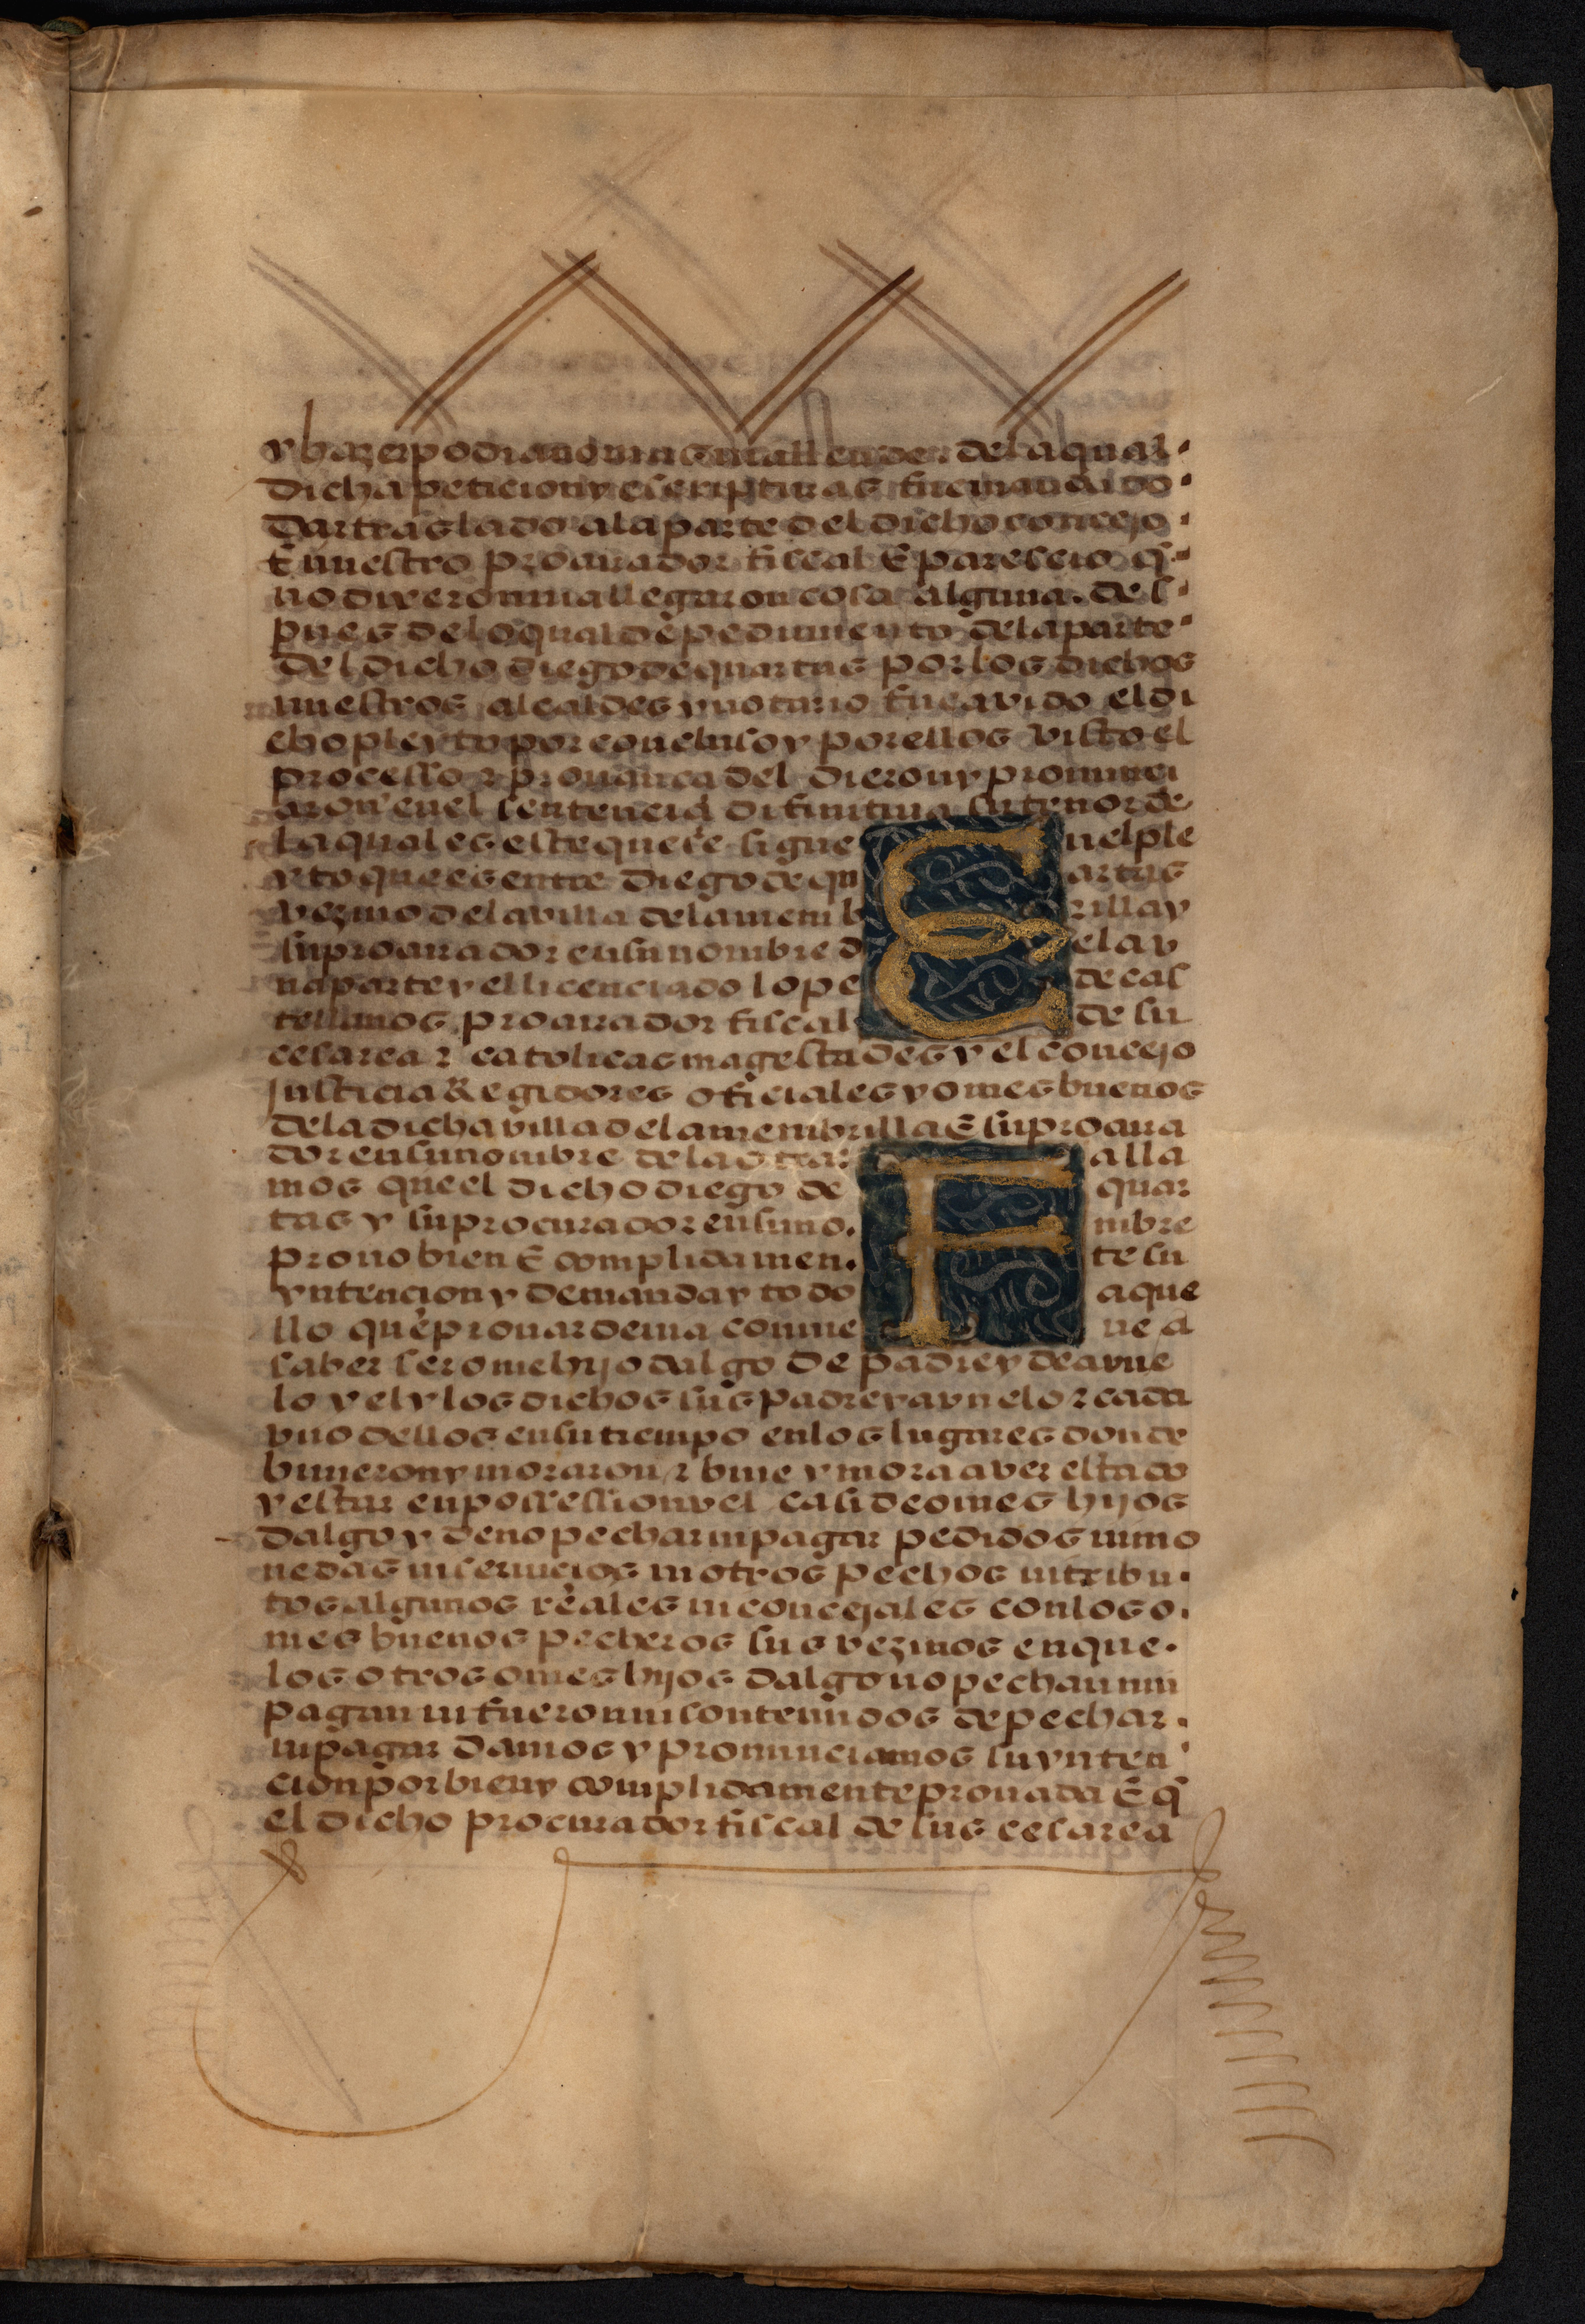 y hazer podia non in entallender dela qual
dicha peticion y escripturas fue mandado
dar traslado ala parte del dicho concejo
E nuestro procurador fiscal E parescio q̄
no dixeron ni allegaron cosa alguna. des
pues delo qual de pedimiento dela parte
del dicho diego de quartas por los dichos
nuestros alcaldes y notario fue avido el di
cho pleyto por concluso y por ellos visto el
processo z provança del dieron y pronunci
aron en el sentencia difinitiua su tenor de
la qual es este que se sigue Enel ple
yto que es entre diego de quartas
vezino dela villa dela membrilla y
su procurador en su nombre dela v
na parte y el licenciado lope de cas
tellanos procurador fiscal de su
cesarea z catolicas magestades y el concejo
justicia Regidores oficiales y omes buenos
dela dicha villa dela membrilla E su procura
dor en su nombre dela otra: Falla
mos que el dicho diego de quar
tas y su procurador en su no. mbre
prouo bien E complidamen. te su
yntencion y demanda y todo aque
llo que prouar deuia conuiene a
saber ser ome hijo dalgo de padre y de avue
lo y el y los dichos sus padre y avuelo z cada
vno dellos en su tiempo en los lugares donde
biuieron y moraron z biue y mora aver estado
y estar en possession vel casi de omes hijos
dalgo y de no pechar ni pagar pedidos ni mo
nedas ni seruicios ni otros pechos ni tribu.
tos algunos reales ni concejales con los o.
mes buenos pecheros sus vezinos en que.
los otros omes hijos dalgo no pechan nin
pagan ni fueron ni son tenudos de pechar.
ni pagar damos y pronunciamos su ynten
cion por bien y complidamente prouada E q̄
el dicho procurador fiscal de sus cesarea